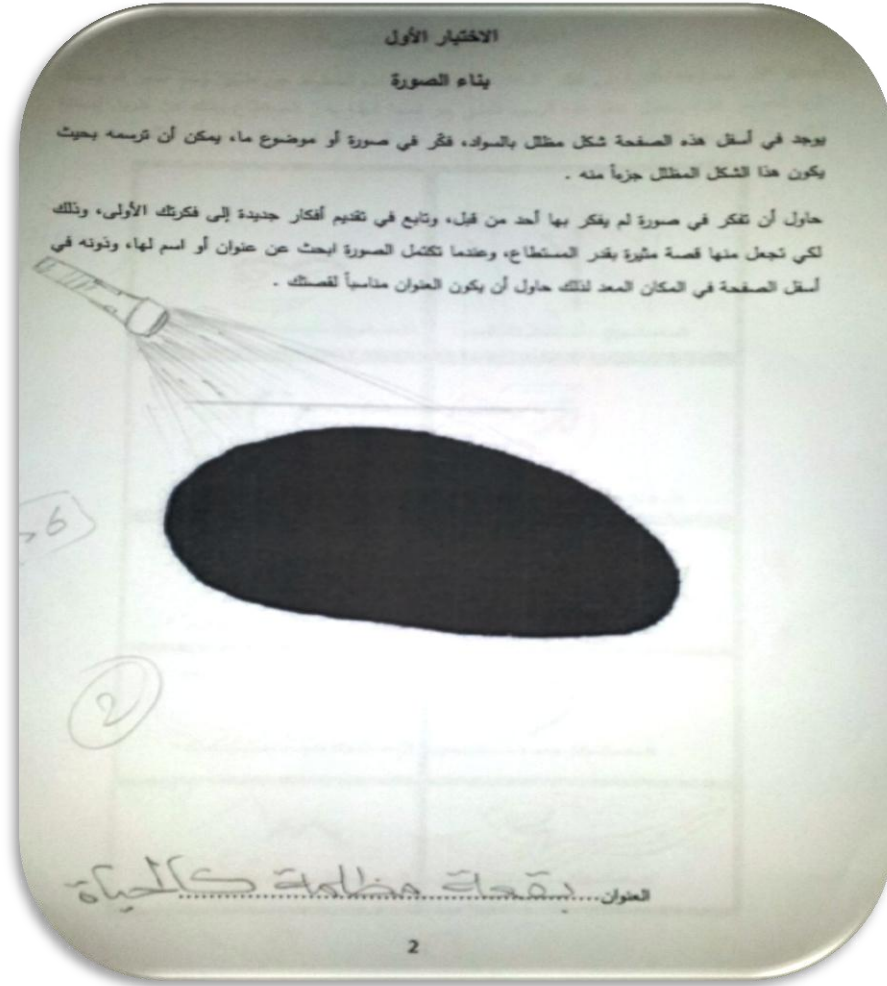 الاختبار الأول
بناء الصورة
يوجد في أسفل هذه الصفحة شكل مظلل بالسواد، فكّر في صورة أو موضوع ما، يمكن أن ترسمه بحيث
يكون هذا الشكل المظلل جزءاً منه .
حاول أن تفكر في صورة لم يفكر بها أحد من قبل، وتابع في تقديم أفكار جديدة إلى فكرتك الأولى، وذلك
لكي تجعل منها قصة مثيرة بقدر المستطاع، وعندما تكتمل الصورة ابحث عن عنوان أو اسم لها، ودونه في
أسفل الصفحة في المكان المعد لذلك حاول أن يكون العنوان مناسباً لقصتك .
6
2
العنوان بقعة مظلمة كالحياة
2